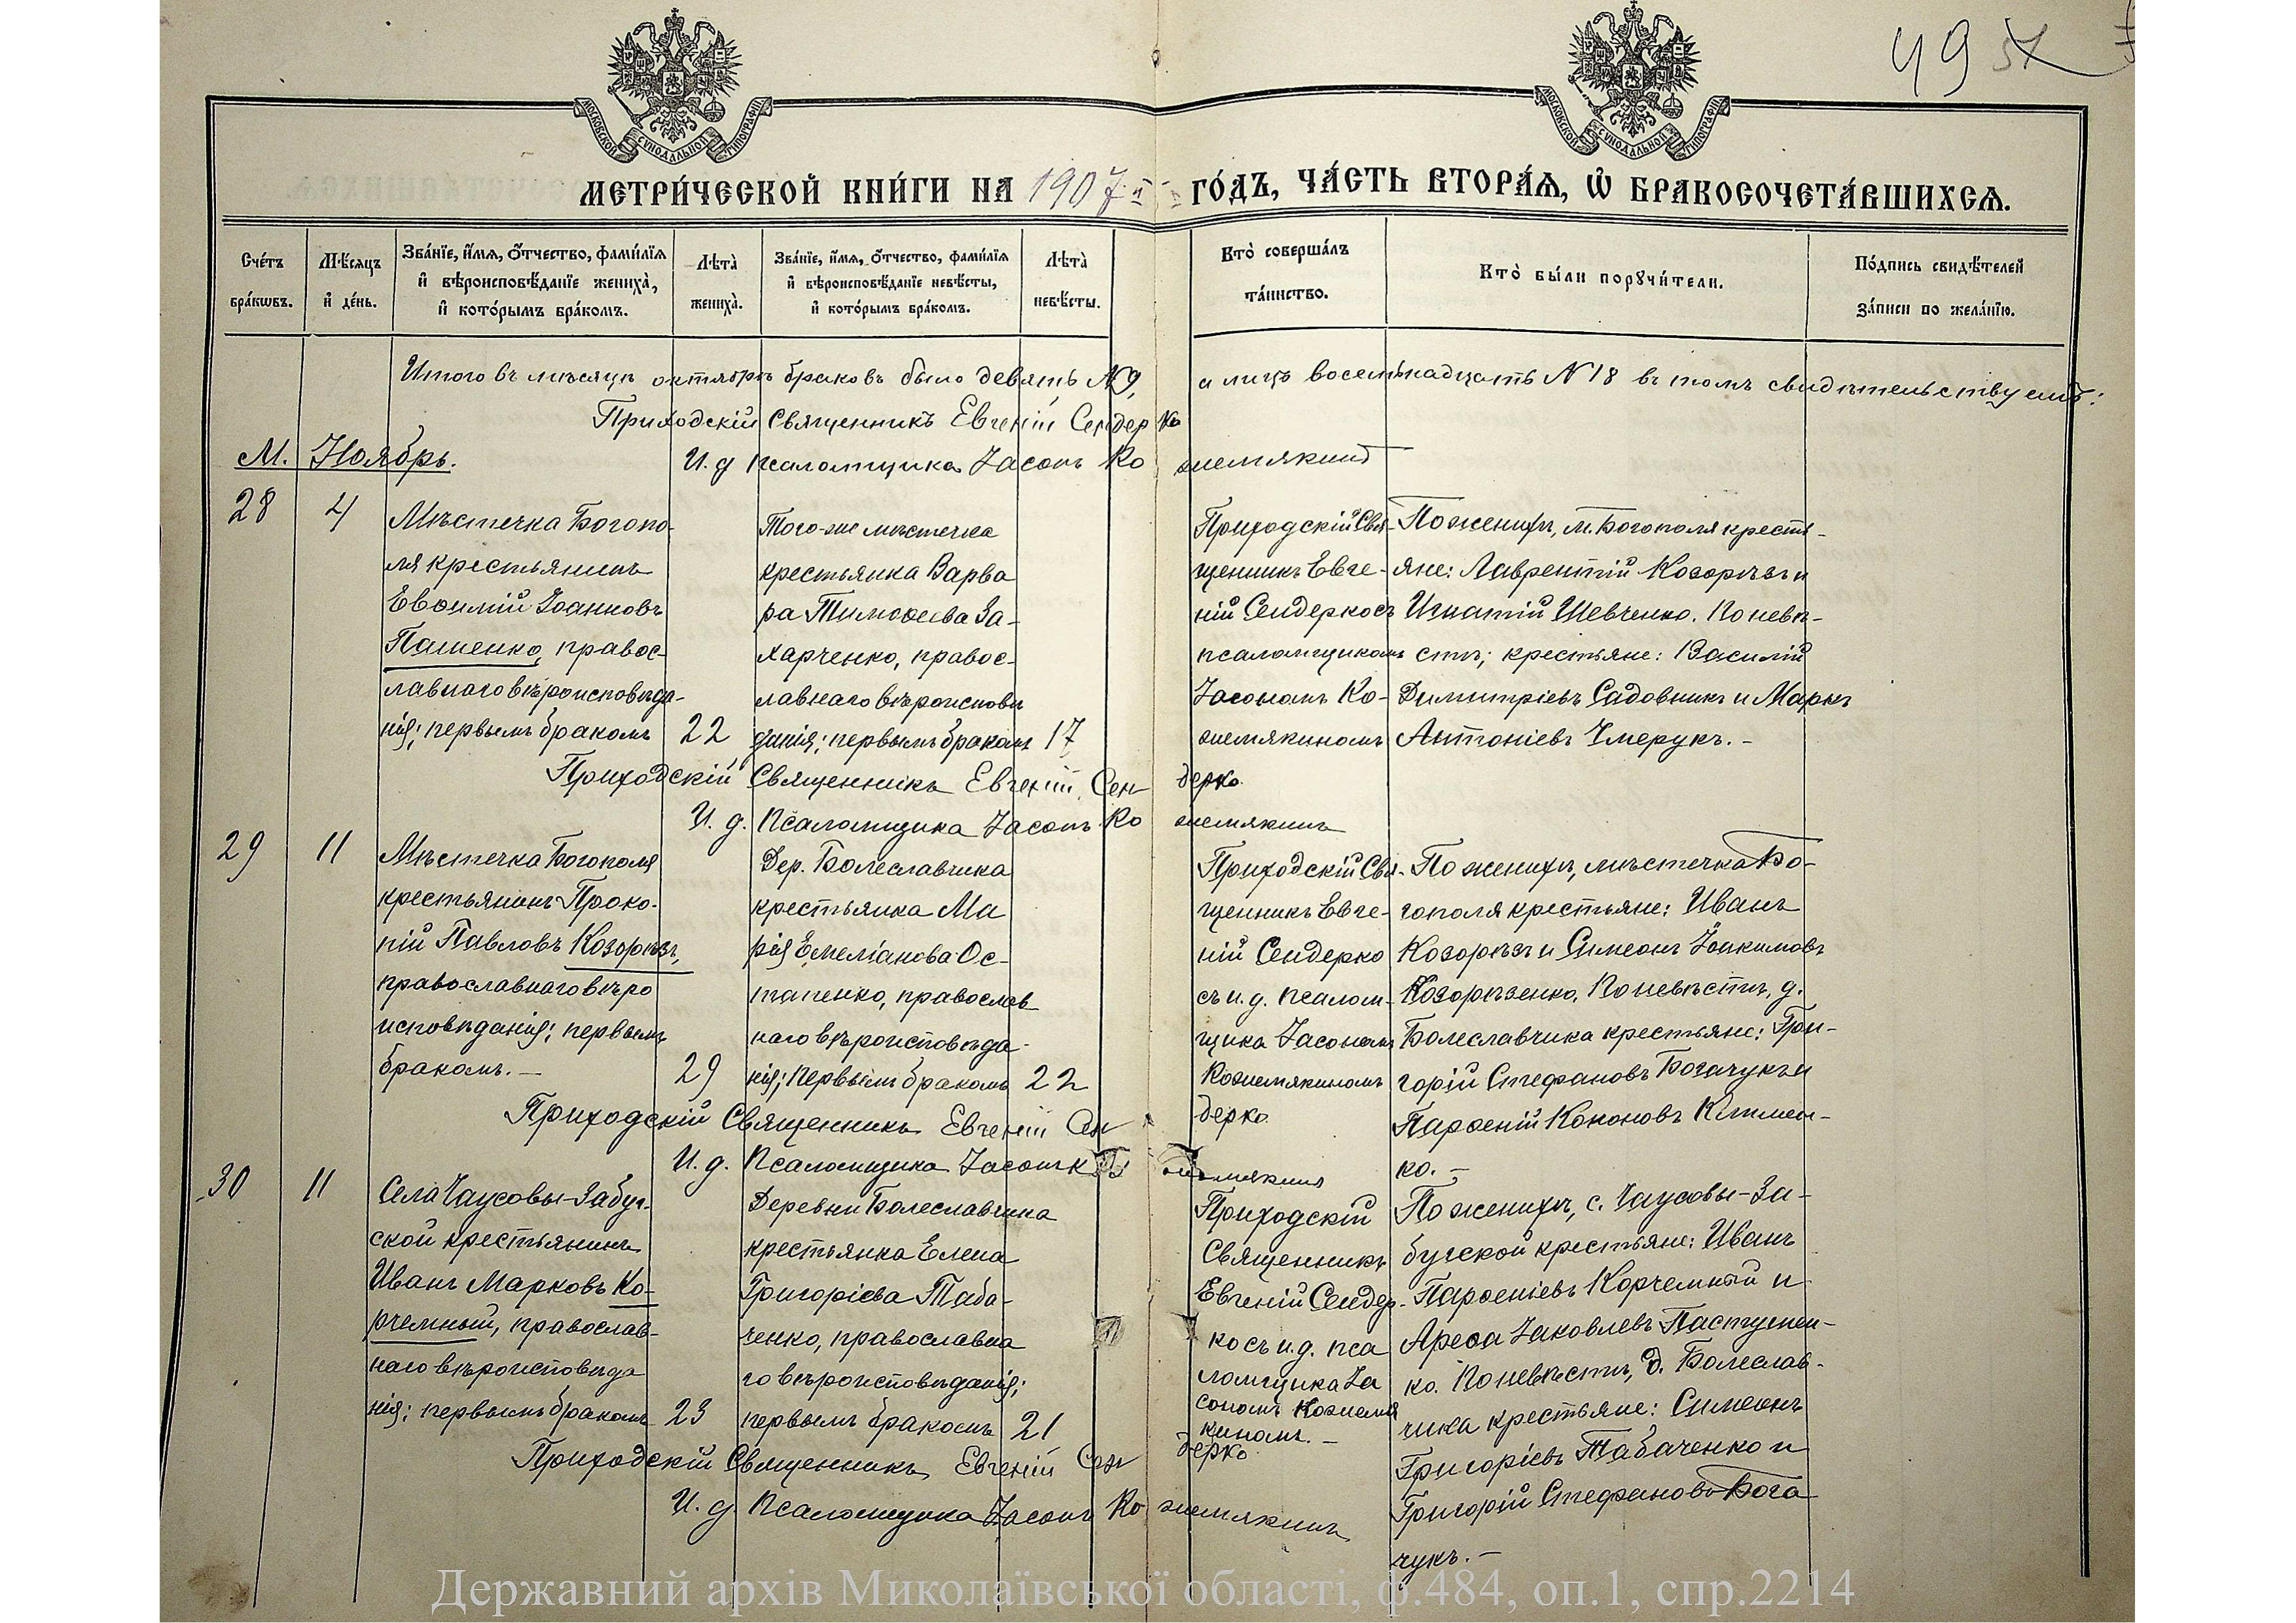 49 57
МОСКОВСКОЙ СУНОДАЛЬНОЙ ТИПОГРАФІИ
МОСКОВСКОЙ СУНОДАЛЬНОЙ ТИПОГРАФІИ
МЕТРИ́ЧЕСКОЙ КНИ́ГИ НА 1907 й ГО́ДЪ, ЧА́СТЬ ВТОРА́Ѧ, Ѽ БРАКОСОЧЕТА́ВШИХСѦ.
Сче́тъ
бра́кѡвъ.
Мѣ́сяцъ
и҆ де́нь.
Зва́нїе, и҆́мѧ, ѻ҆́тчество, фами́лїѧ
и҆ вѣроисповѣ́данїе жениха̀,
и҆ кото́рымъ бра́комъ.
Лѣта̀
жениха̀.
Зва́нїе, и҆́мѧ, ѻ҆́тчество, фами́лїѧ
и҆ вѣроисповѣ́данїе невѣ́сты,
и҆ кото́рымъ бра́комъ.
Лѣта̀
невѣ́сты.
Кто̀ соверша́лъ
та́инство.
Кто̀ бы́ли порꙋчи́тели.
По́дпись свидѣ́телей
за́писи по жела́нїю.
Итого въ мѣсяцѣ октябрѣ браковъ было девять №9, а лицъ восемьнадцать №18 въ томъ свидѣтельствуемъ:
Приходскій Священникъ Евгеній Сендерко
М. Ноябрь.
И. д Псаломщика Іасонъ Кожемякинъ
28
4
Мѣстечка Богопо-
ля крестьянинъ
Евѳимій Іоанновъ
Пашенко, правос-
лавнаго вѣроисповѣда-
нія; первымъ бракомъ
22
Того-же мѣстечка
крестьянка Варва
ра Тимоѳеева За-
харченко, правос-
лавнаго вѣроисповѣ
данія; первымъ бракомъ
17
Приходскій Свя-
щенникъ Евге-
ній Сендерко съ
псаломщикомъ
Іасономъ Ко-
жемякиномъ
По женихѣ, м. Богополя кресть-
яне: Лаврентій Козорѣзъ и
Игнатій Шевченко. По невѣ-
стѣ; крестьяне: Василій
Димитріевъ Садовникъ и Маркъ
Антоніевъ Чмерукъ. -
Приходскій Священникъ Евгеній Сендерко
И. д. Псаломщика Іасонъ Кожемякинъ
29
11
Мѣстечка Богополя
крестьянинъ Проко-
пій Павловъ Козорѣзъ,
православнаго вѣро
исповѣданія; первымъ
бракомъ. -
29
Дер. Болеславчика
крестьянка Ма
рія Емеліанова Ос-
тапенко, православ
наго вѣроисповѣда-
нія; первымъ бракомъ
22
Приходскій Свя-
щенникъ Евге-
ній Сендерко
съ и. д. псалом-
щика Іасономъ
Кожемякиномъ
По женихѣ, мѣстечка Бо-
гополя крестьяне: Иванъ
Козорѣзъ и Симеонъ Іоакимовъ
Козорѣзенко. По невѣстѣ, д.
Болеславчика крестьяне: Гри-
горій Стефановъ Богачукъ и
Парѳеній Кононовъ
ко. -
Приходскій Священникъ Евгеній Сендерко
И. д. Псаломщика Іасонъ Кожемякинъ
30
11
Села Чаусовы-Забуг-
ской крестьянинъ
Иванъ Марковъ Ко-
рчемный, православ-
наго вѣроисповѣда
нія; первымъ бракомъ
23
Деревни Болеславчика
крестьянка Елена
Григоріева Таба-
ченко, православна
го вѣроисповѣданія;
первымъ бракомъ
21
Приходскій
Священникъ
Евгеній Сендер-
ко съ и.д. пса
ломщика Іа
сономъ Кожемя
киномъ. -
По женихѣ, с. Чаусовы-За-
бугской крестьяне: Иванъ
Парѳеніевъ Корчемный и
Іаковлевъ Пастушен-
ко. По невѣстѣ, д. Болеслав-
чика крестьяне: Симеонъ
Григоріевъ Табаченко и
Григорій Стефановъ Бога
чукъ. -
Приходскій Священникъ Евгеній Сендерко
И. д. Псаломщика Іасонъ Кожемякинъ
Державний архів Миколаївської області, ф.484, оп.1, спр.2214